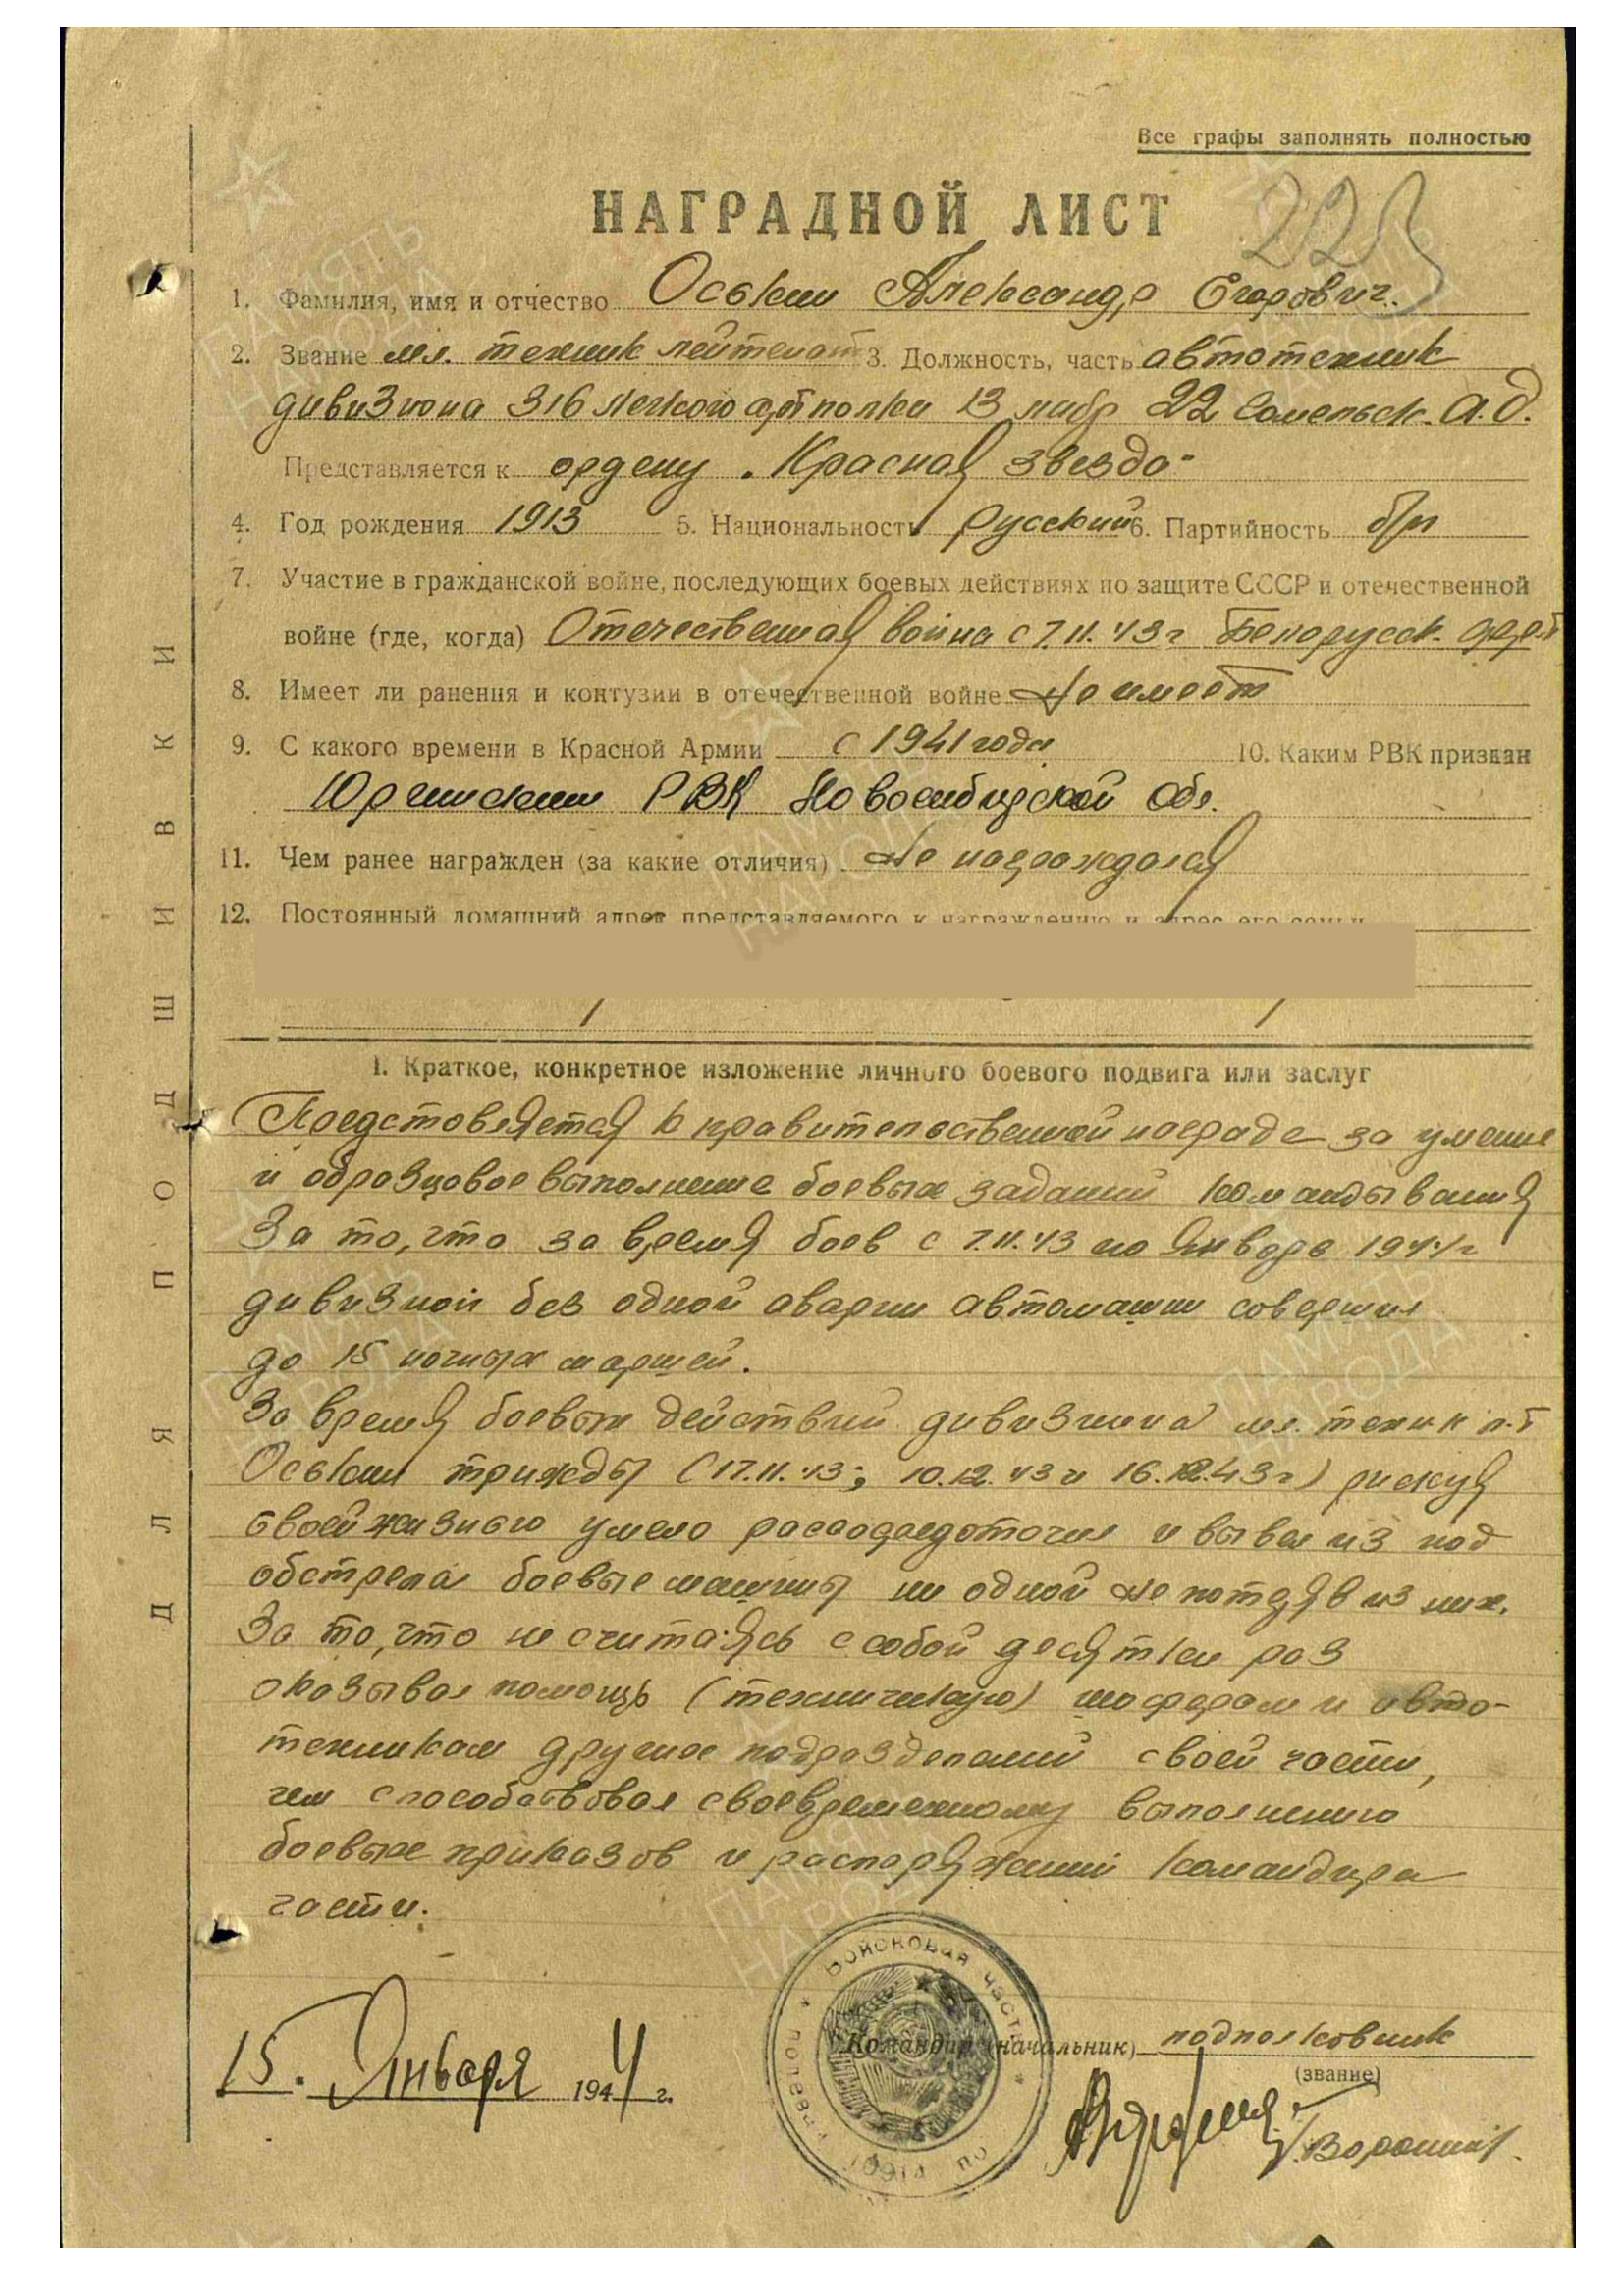 Все графы заполнять полностью
НАГРАДНОЙ ЛИСТ
223
1. Фамилия, имя и отчество Оськин Александр Егорович.
2. Звание мл. техник лейтенант 3. Должность, часть автотехник
дивизиона 316 легкого артполка 13 лабр 22 Гомельск. А.Д.
Представляется к ордену "Красная звезда"
4. Год рождения 1913 5. Национальность русский 6. Партийность б/п
7. Участие в гражданской войне, последующих боевых действиях по защите СССР и отечественной
войне (где, когда) Отечественная война с 7.11.43г Белорусск.
8. Имеет ли ранения и контузии в отечественной войне Не имеет
9. С какого времени в Красной Армии с 1941 года 10. Каким РВК призван
Юргинским РВК Новосибирской обл.
11. Чем ранее награжден (за какие отличия) Не награждался
12. Постоянный домашний адрес представляемого к награждению и адрес его семьи
I. Краткое, конкретное изложение личного боевого подвига или заслуг
Представляется к правительственной награде за умение
и образцовое выполнение боевых заданий командывания
За то, что за время боев с 7.11.43 по январь 1944г
дивизион без одной аварии автомашин совершил
до 15 ночных маршей.
За время боевых действий дивизиона мл. техник л-т
Оськин трижды (17.11.43; 10.12.43 и 16.12.43г) рискуя
своей жизнью умело рассредоточил и вывел из под
обстрела боевые машины ни одной не потеряв из них.
За то, что не считаясь с собой десятки раз
оказывал помощь (техническую) шоферам и авто-
техникам других подразделений своей части,
чем способствовал своевременному выполнению
боевых приказов и распоряжений командира
части.
Войсковая часть
полевая почта
15. Января 1944 г.
Командир (начальник) подполковник
(звание)
ДЛЯ ПОДШИВКИ
ПАМЯТЬ НАРОДА